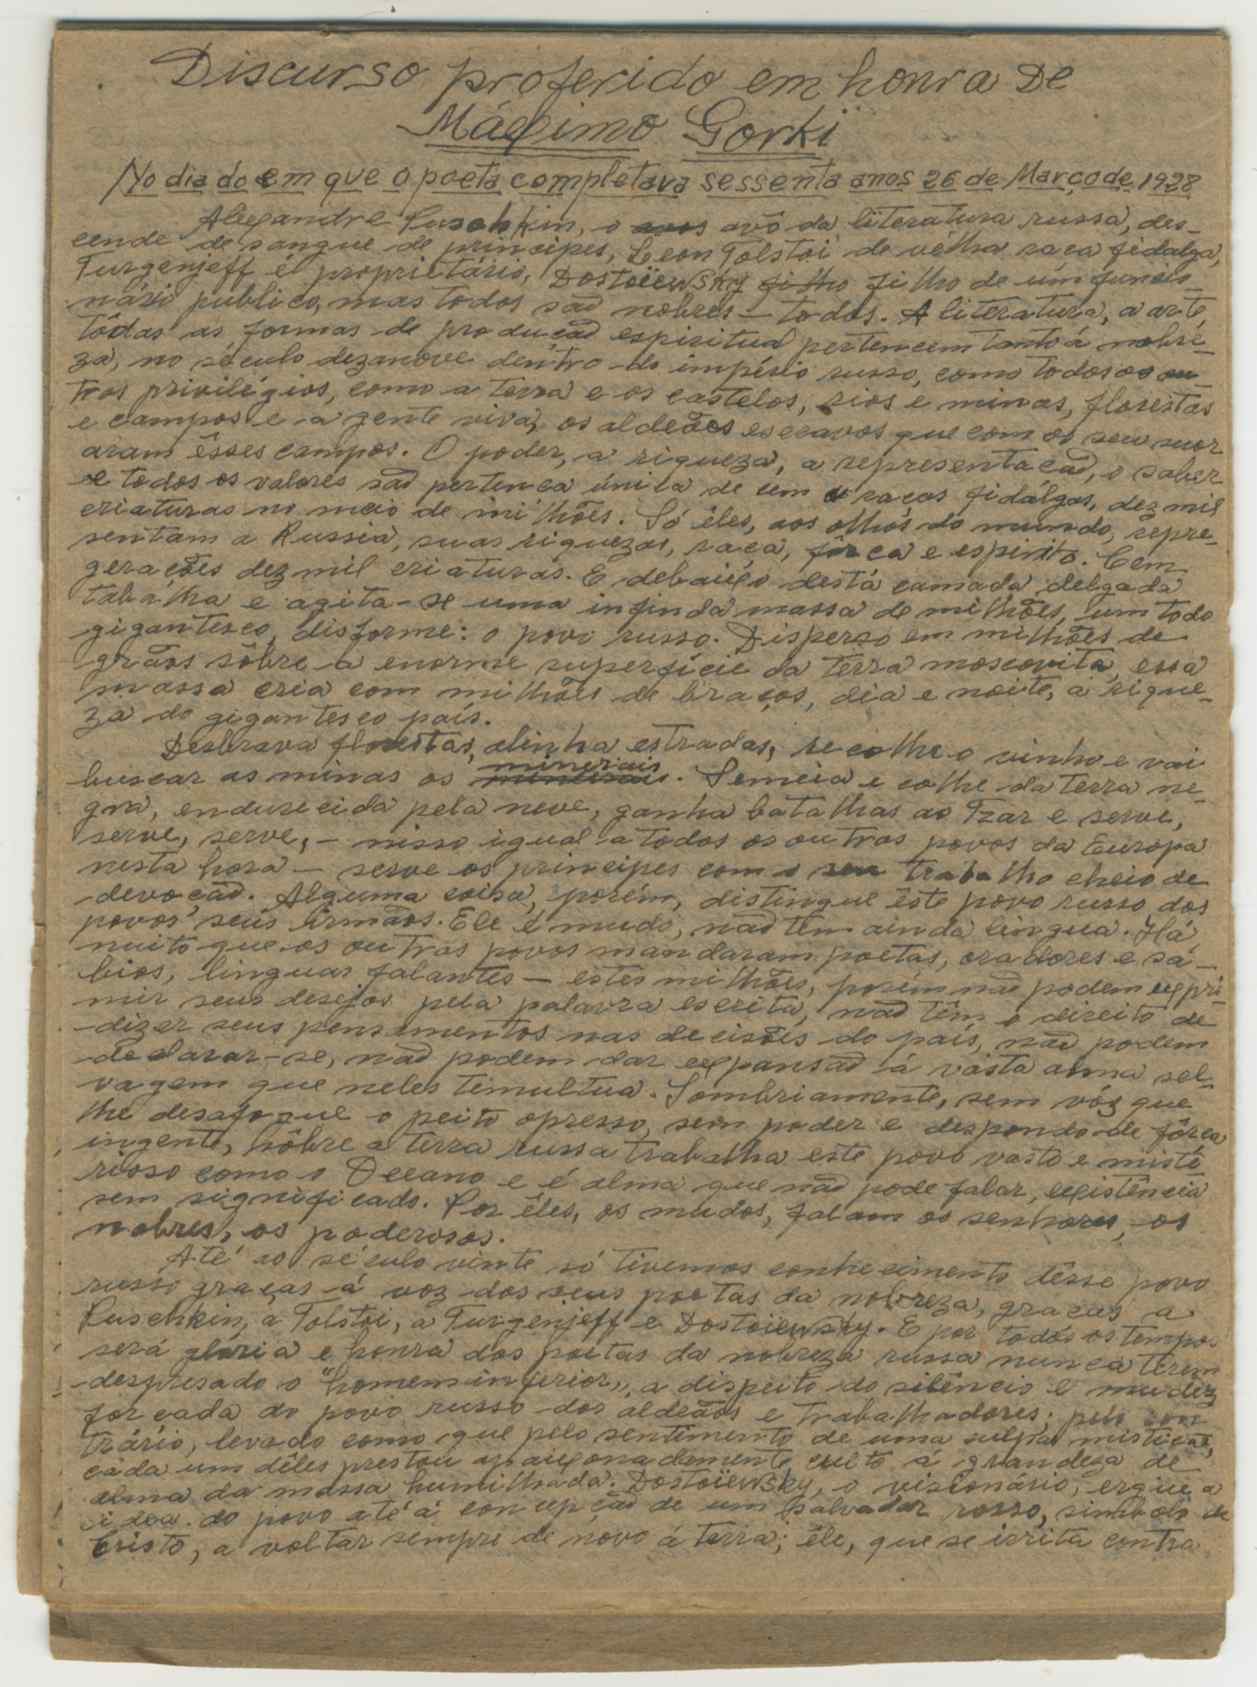 Discurso proferido em honra de
Máximo Gorki
No dia do em que o poeta completava sessenta anos 26 de Março de 1928
Alexandre Puschkin, o avô da literatura russa, des-
cende de sangue de principes, Leon Tolstoi de velha raça fidalga,
Turgenjeff é proprietário, Dostoïewsky filho filho de um funcio-
nário publico, mas todos são nobres — todos. A literatura, a arte,
tôdas as formas de produção espiritual pertencem tanto á nobre-
za, no século dezanove dentro do império russo, como todos os ou-
tros privilégios, como a terra e os castelos, rios e minas, florestas
e campos e a gente viva, os aldeãos escravos que com o seu suor
aram êsses campos. O poder, a riqueza, a representação, o saber
e todos os valores são pertença única de cem raças fidalgas, dez mil
criaturas no meio de milhões. Só êles, aos olhos do mundo, repre-
sentam a Russia, suas riquezas, raça, fôrça e espirito. Cem
gerações dez mil criaturas. E debaixo desta camada delgada
tabalha e agita-se uma infinda massa de milhões, um todo
gigantesco, disforme: o povo russo. Disperso em milhões de
grãos sôbre a enorme superficie da terra moscovita, essa
massa cria com milhões de braços, dia e noite, a rique-
za do gigantesco país.
Desbrava florestas, alinha estradas, recolhe o vinho e vai
buscar as minas os minerais. Semeia e colhe da terra ne-
gra, endurecida pela neve, ganha batalhas ao Tzar e serve,
serve, serve, — nisso igual a todos os outros povos da Europa
nesta hora — serve os principes com o seu trabalho cheio de
devoção. Alguma coisa, porém, distingue êste povo russo dos
povos seus irmãos. Ele é mudo, não têm ainda lingua. Há
muito que os outros povos mandaram poetas, oradores e sá-
bios, linguas falantes — estes milhões, porém não podem expri-
mir seus desejos pela palavra escrita, não têm o direito de
dizer seus pensamentos nas decisões do país, não podem
declarar-se, não podem dar expansão á vasta alma sel-
vagem que neles tumultua. Sombriamente, sem vóz que
lhe desafogue o peito opresso, sem poder e dispondo de fôrça
ingente, sôbre a terra russa trabalha este povo vasto e misté
rioso como o Oceano e é alma que não pode falar, existência
sem significado. Por êles, os mudos, falam os senhores, os
nobres, os poderosos.
Até ao século vinte só tivemos conhecimento dêsse povo
russo graças á voz dos seus poetas da nobreza, graças a
Puschkin, a Tolstoi, a Turgenjeff e Dostoiewsky. E por todos os tempos
será glória e honra dos poetas da nobreza russa nunca terem
despresado o "homem inferior", a dispeito do silêncio e mudez
forçada do povo russo dos aldeãos e trabalhadores; pelo con
trário, levado como que pelo sentimento de uma culpa mistica,
cada um dêles prestou apaixonadamente culto á grandeza de
alma da massa humilhada. Dostoiewsky, o visionário, ergue a
idea do povo até á concepção de um salvador rosso, simbolo de
Cristo, a voltar sempre de novo á terra; êle, que se irrita contra